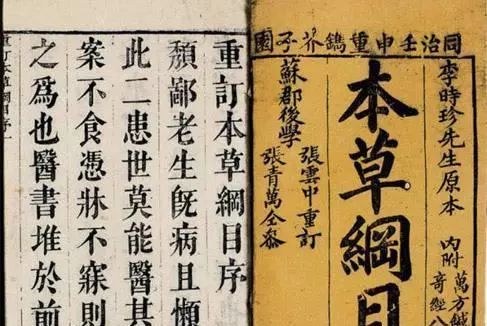 同治壬申重鐫芥子園
李時珍先生原本
內附萬方鍼
奇經八
本草綱目
張雲中重訂
張青萬仝參
蘇郡後學
重訂本草綱目序
頹鄙老生旣病且懶
此二患世莫能醫其
案不食憑牀不寐則
之爲也醫書堆於前
重訂本草綱目序